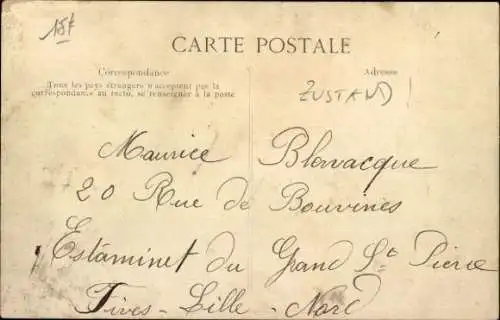 15f
CARTE POSTALE
Correspondance
Tous les pays étrangers n'acceptent pas la
correspondance au recto, se renseigner à la poste
Adresse
ZUSTAND!
Maurice Blovacque
20 Rue de Bouvines
Estaminet du Grand St Pierre
Fives-Lille-Nord